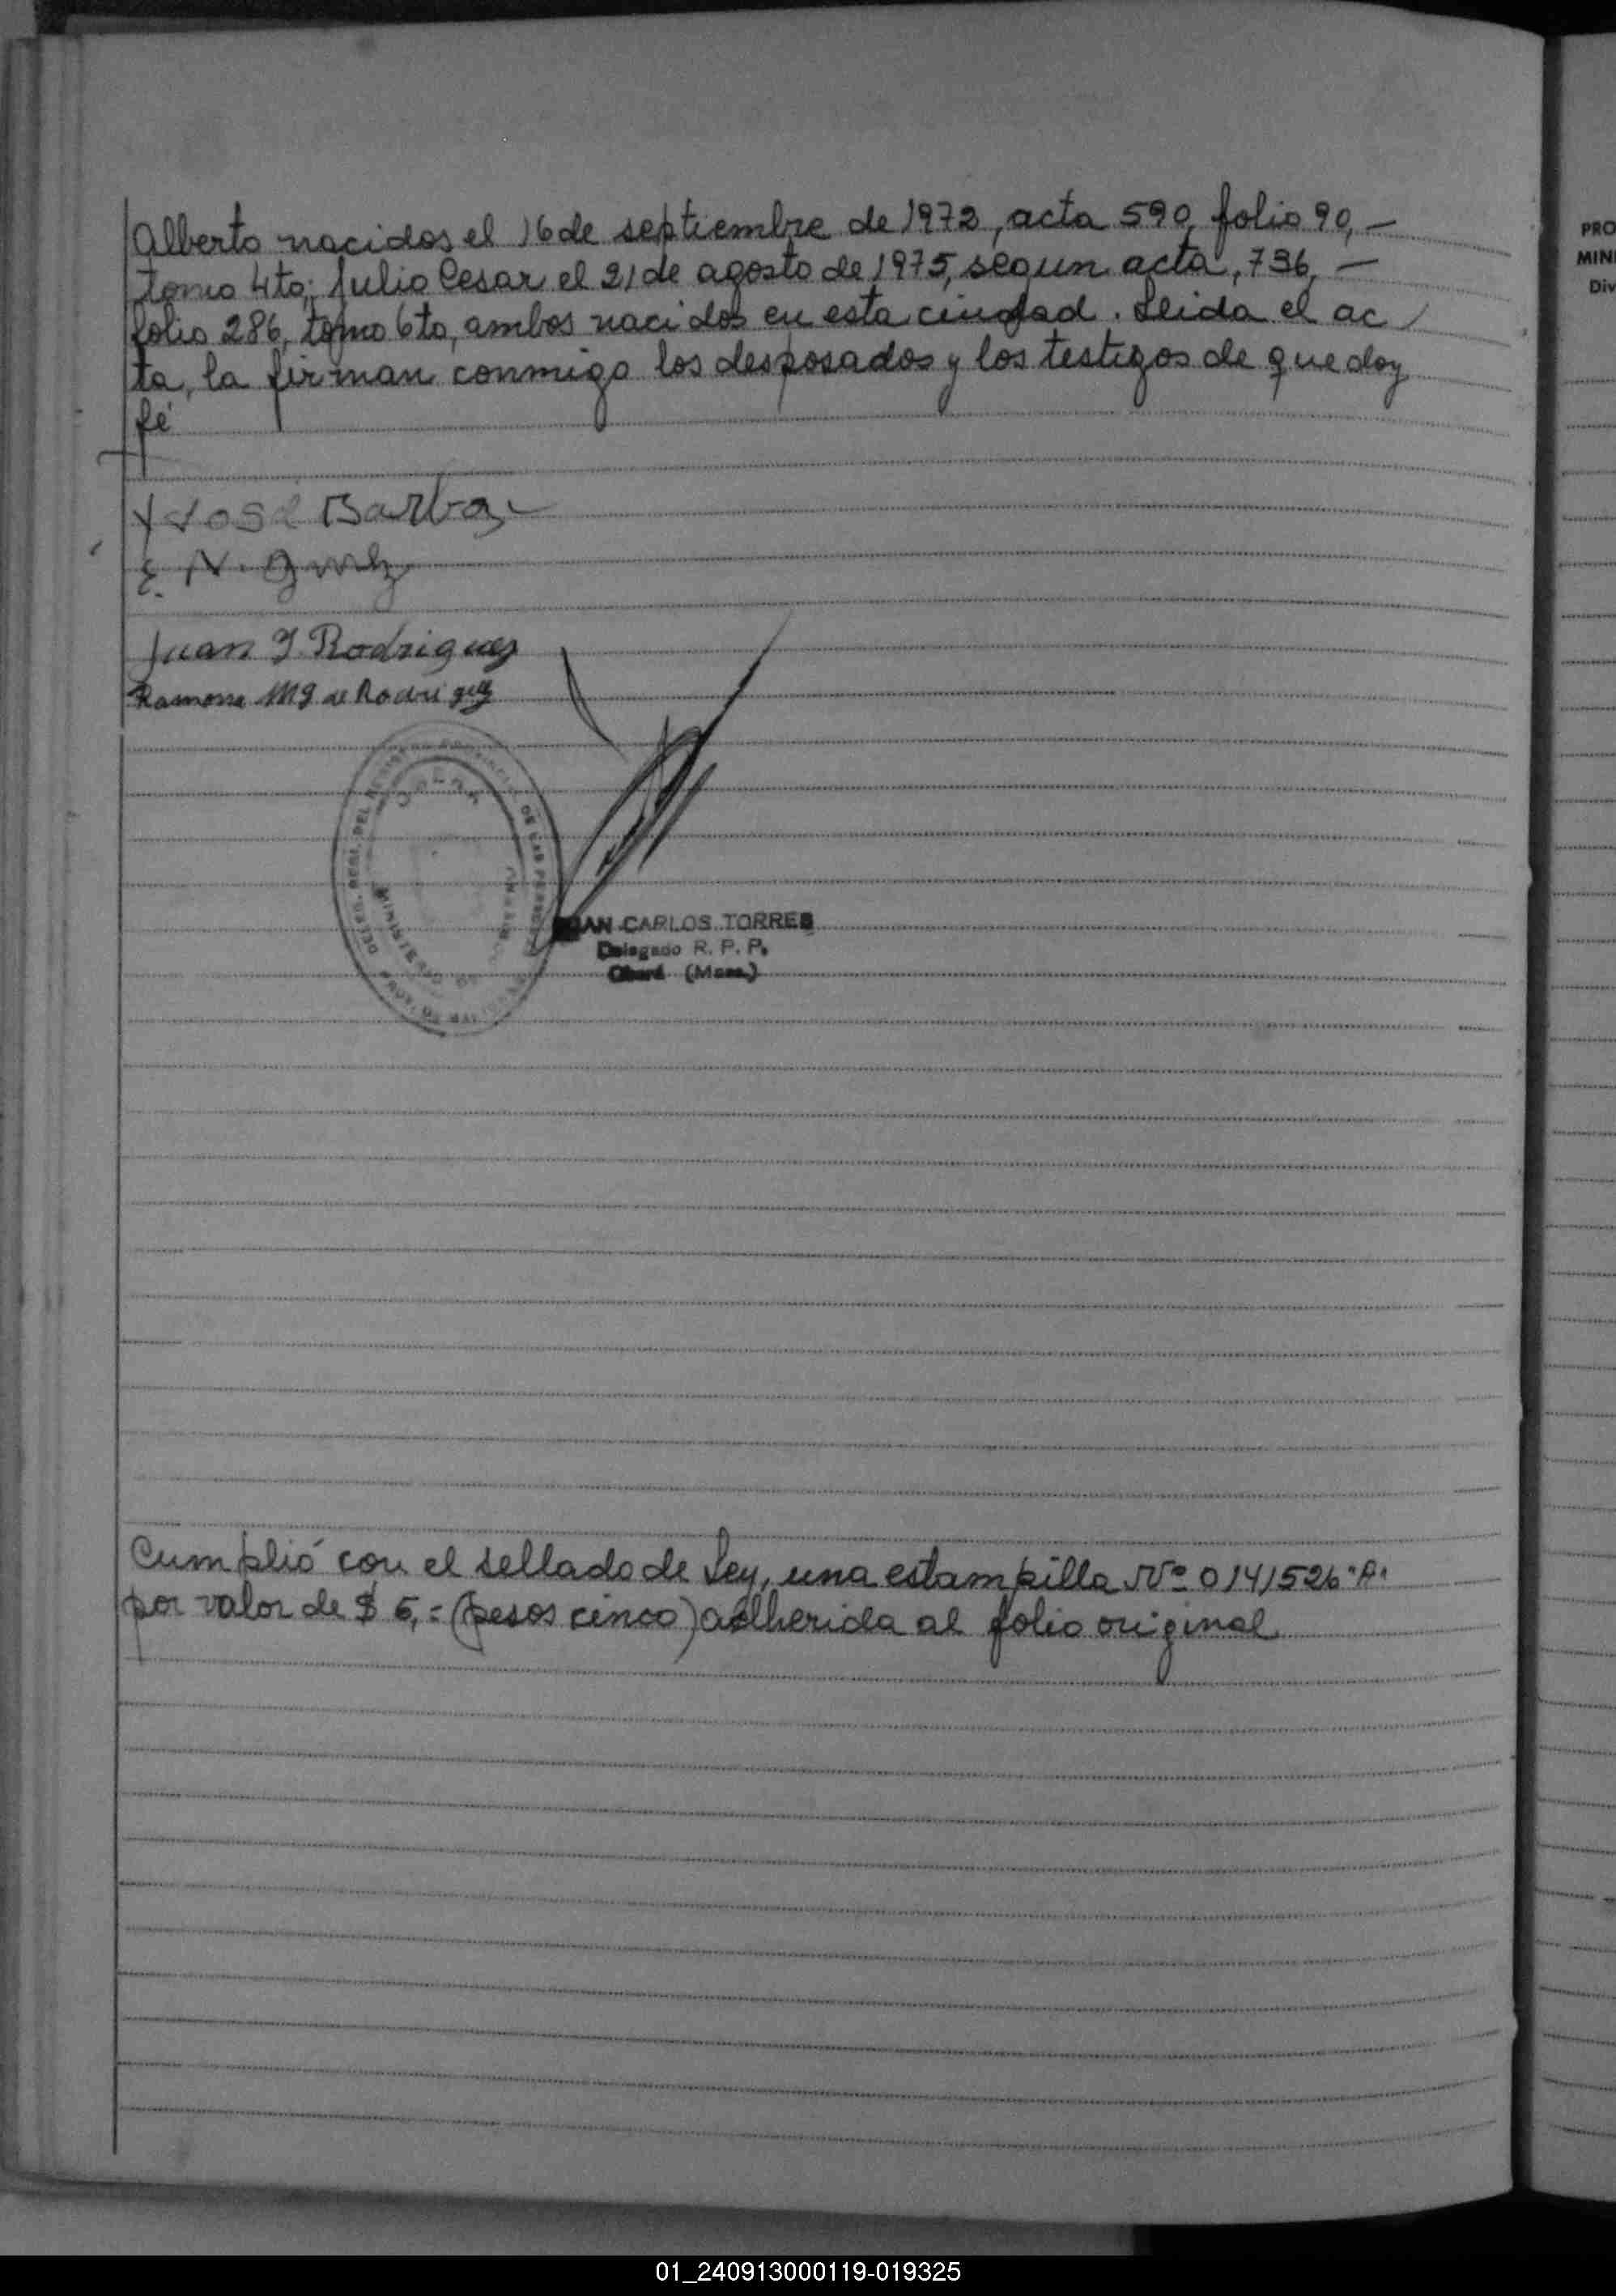 Alberto nacidos el 16 de septiembre de 1972, acta 590, folio 90, –
tomo 4to; Julio Cesar el 21 de agosto de 1975, segun acta, 736, –
folio 286, tomo 6to, ambos nacidos en esta ciudad. Leida el ac
ta, la firman conmigo los desposados y los testigos de que doy
fé
Jose Barboza
E. N. Gomez
Juan J. Rodriguez
Ramona M G de Rodriguez
DELEG. REGI. DEL REGISTRO PROVINCIAL DE LAS PERSONAS
OBERA
MINISTERIO DE GOBIERNO
CARLOS TORRES
Delegado R. P. P.
Oberá (Mnes.)
Cumplió con el sellado de Ley, una estampilla Nº 0141526 "A"
por valor de $ 5,= (pesos cinco) adherida al folio original
PRO
MINI
Div
01_240913000119-019325